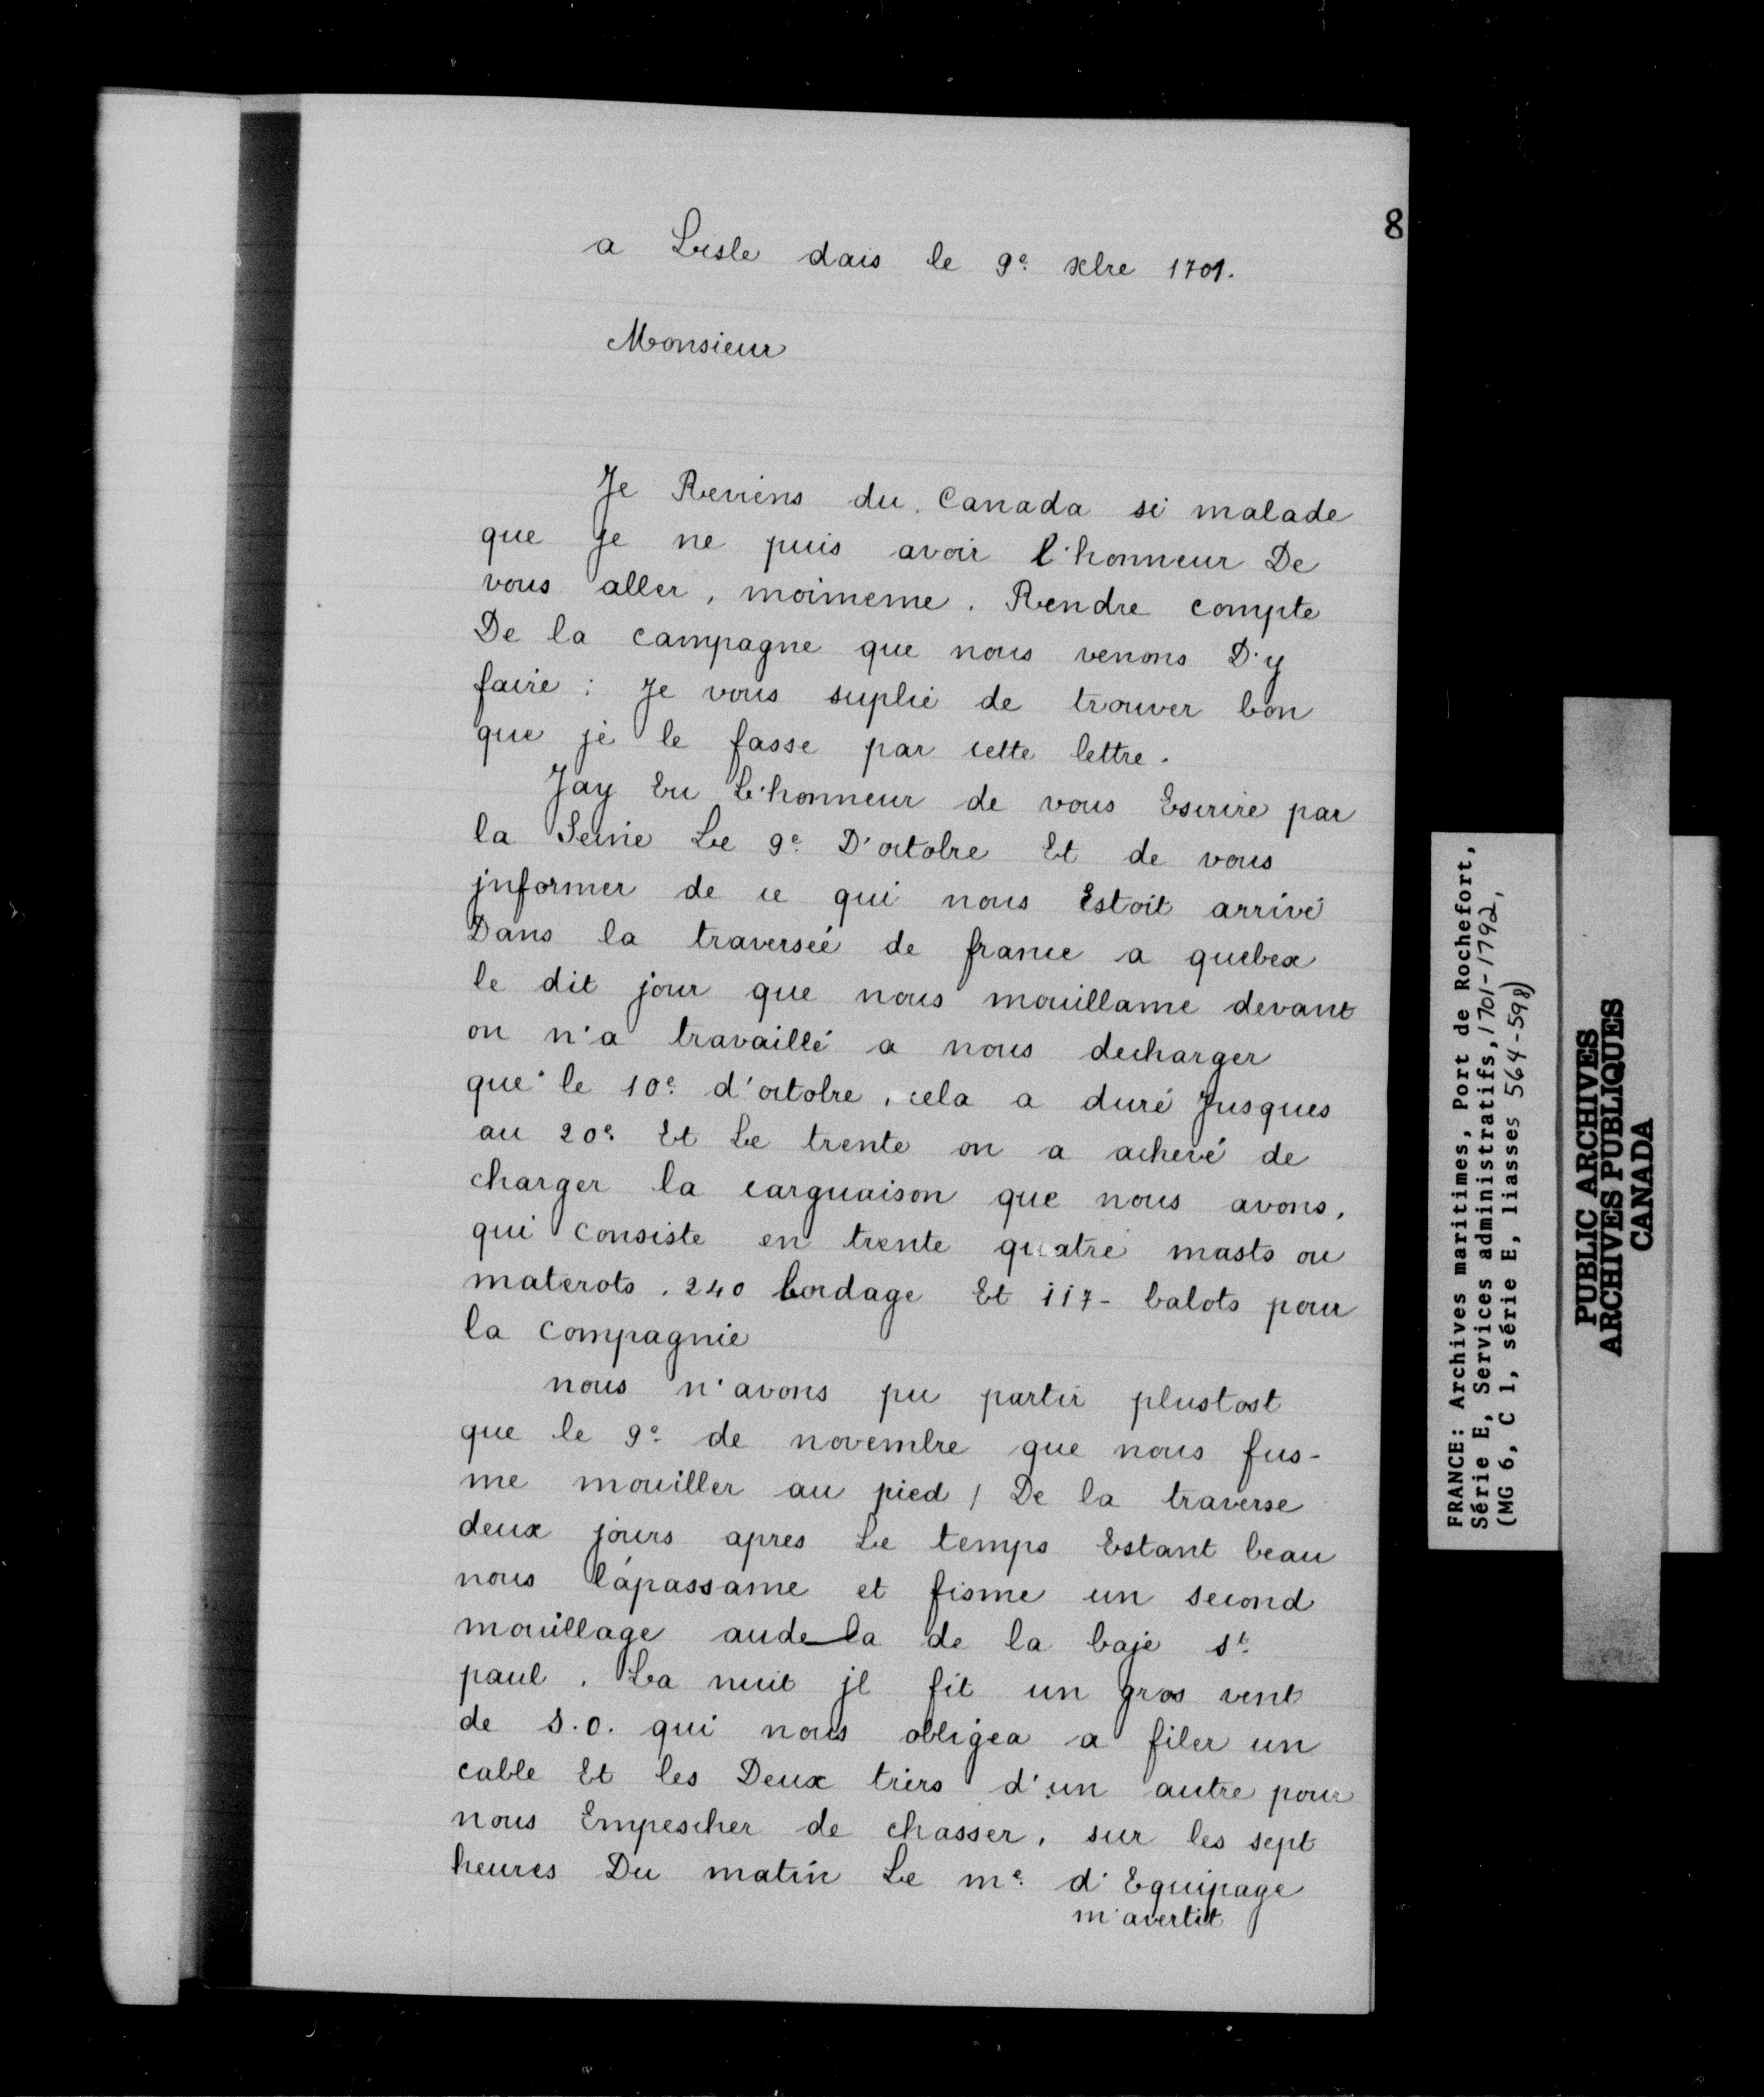 8
a Lisle dais le 9e xbre 1701.
Monsieur
Je Reviens du Canada si malade
que je ne puis avoir l'honneur De
vous aller, moimeme. Rendre compte
De la campagne que nous venons D'y
faire : Je vous suplie de trouver bon
que je le fasse par cette lettre.
Jay Eu L'honneur de vous Escrire par
la Seine Le 9e D'octobre Et de vous
jnformer de ce qui nous Estoit arrivé
Dans la traverseé de france a quebex
le dit jour que nous mouillame devant
on n'a travaillé a nous decharger
que le 10e d'octobre, cela a duré Jusques
au 20e Et Le trente on a achevé de
charger la carguaison que nous avons,
qui consiste en trente quatre masts ou
materots, 240 bordage Et 117- balots pour
la compagnie
nous n'avons pu partir plustost
que le 9e de novembre que nous fus-
me mouiller au pied / De la traverse
deux jours apres Le temps Estant beau
nous lapassame et fisme un second
mouillage audela de la baje st
paul. La nuit jl fit un gros vent
de S.O. qui nous obligea a filer un
cable Et les Deux tiers d'un autre pour
nous Empescher de chasser, sur les sept
heures Du matin Le me d'Equipage
m'avertit
FRANCE: Archives maritimes, Port de Rochefort,
Série E, Services administratifs, 1701-1792,
(MG 6, C 1, série E, liasses 564-598)
PUBLIC ARCHIVES
ARCHIVES PUBLIQUES
CANADA